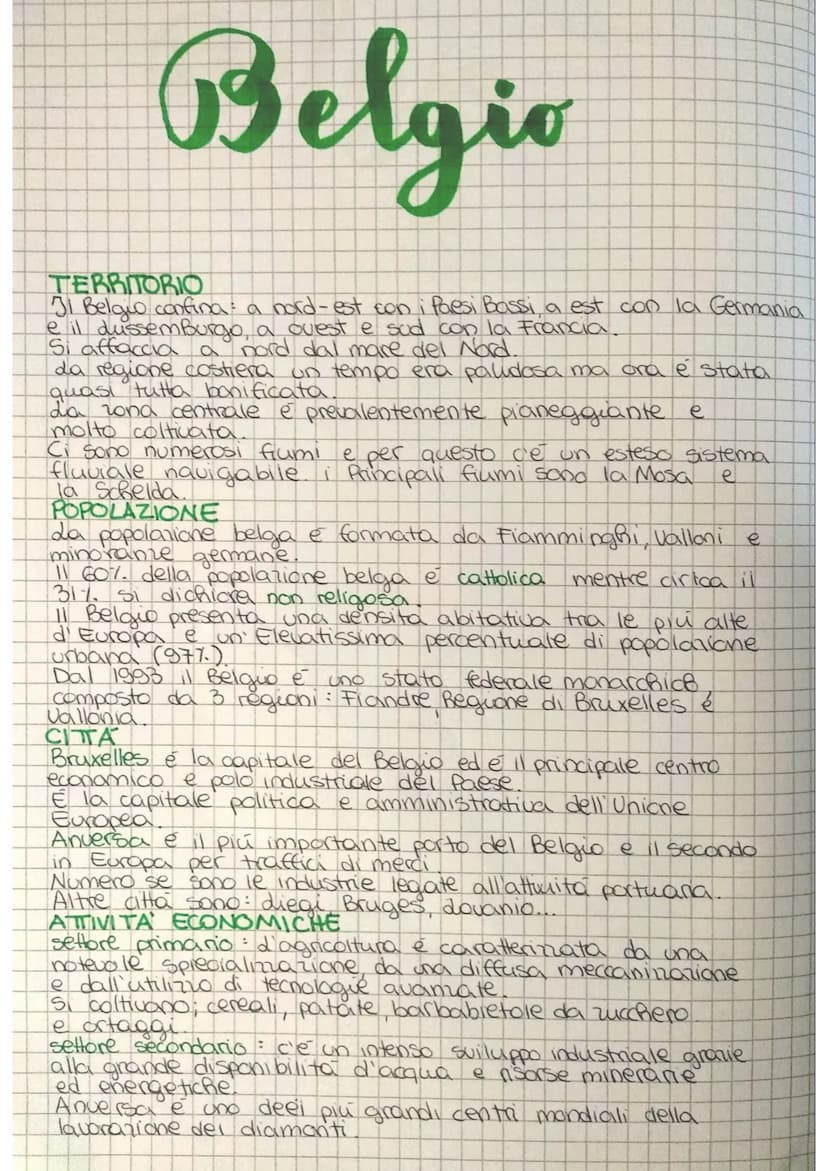 Belgio
TERRITORIO
Il Belgio confina: a nord-est con i Paesi Bassi, a est con la Germania
e il Lussemburgo, a ovest e sud con la Francia.
Si affaccia a nord dal mare del Nord.
La regione costiera un tempo era paludosa ma ora é stata
quasi tutta bonificata.
La zona centrale é prevalentemente pianeggiante e
molto coltivata.
Ci sono numerosi fiumi e per questo c'é un esteso sistema
fluviale navigabile i Principali fiumi sono la Mosa e
la Schelda.
POPOLAZIONE
La popolazione belga é formata da Fiamminghi, Valloni e
minoranze germane.
Il 60% della popolazione belga é cattolica mentre cirtca il
31% si dichiara non religosa.
Il Belgio presenta una densitá abitativa tra le piú alte
d'Europa e un' Elevatissima percentuale di popolazione
urbana (97%).
Dal 1993 il Belgio é uno stato federale monarchico
composto da 3 regioni: Fiandre, Regione di Bruxelles é
Vallonia.
CITTA'
Bruxelles é la capitale del Belgio ed é il principale centro
economico e polo industriale del Paese.
É la capitale politica e amministrativa dell'Unione
Europea.
Anversa é il piú importante porto del Belgio e il secondo
in Europa per traffici di merci.
Numero se sono le industrie legate all'attivitá portuaria.
Altre cittá sono: Liegi, Bruges, Lovanio...
ATTIVITA' ECONOMICHE
settore primario: L'agricoltura é caratterizzata da una
notevole specializzazione, da una diffusa meccanizzazione
e dall'utilizzo di tecnologie avanzate.
Si coltivano; cereali, patate, barbabietole da zucchero
e ortaggi.
settore secondario: c'é un intenso sviluppo industriale grazie
alla grande disponibilitá d'acqua e risorse minerarie
ed energetiche.
Anversa é uno degli piú grandi centri mondiali della
lavorazione dei diamanti.